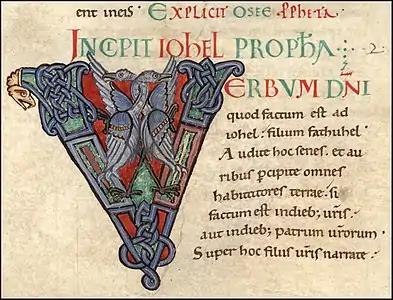 ent in eis. EXPLICIT OSEE PPHETA.
INCIPIT IOHEL PROPHA
VERBUM DNI
quod factum est ad
iohel: filium fathuhel.
Audite hoc senes. et au
ribus pcipite omnes
habitatores terrae. si
factum est indieb; uris.
aut indieb; patrum urorum.
Super hoc filiis uris narrate.